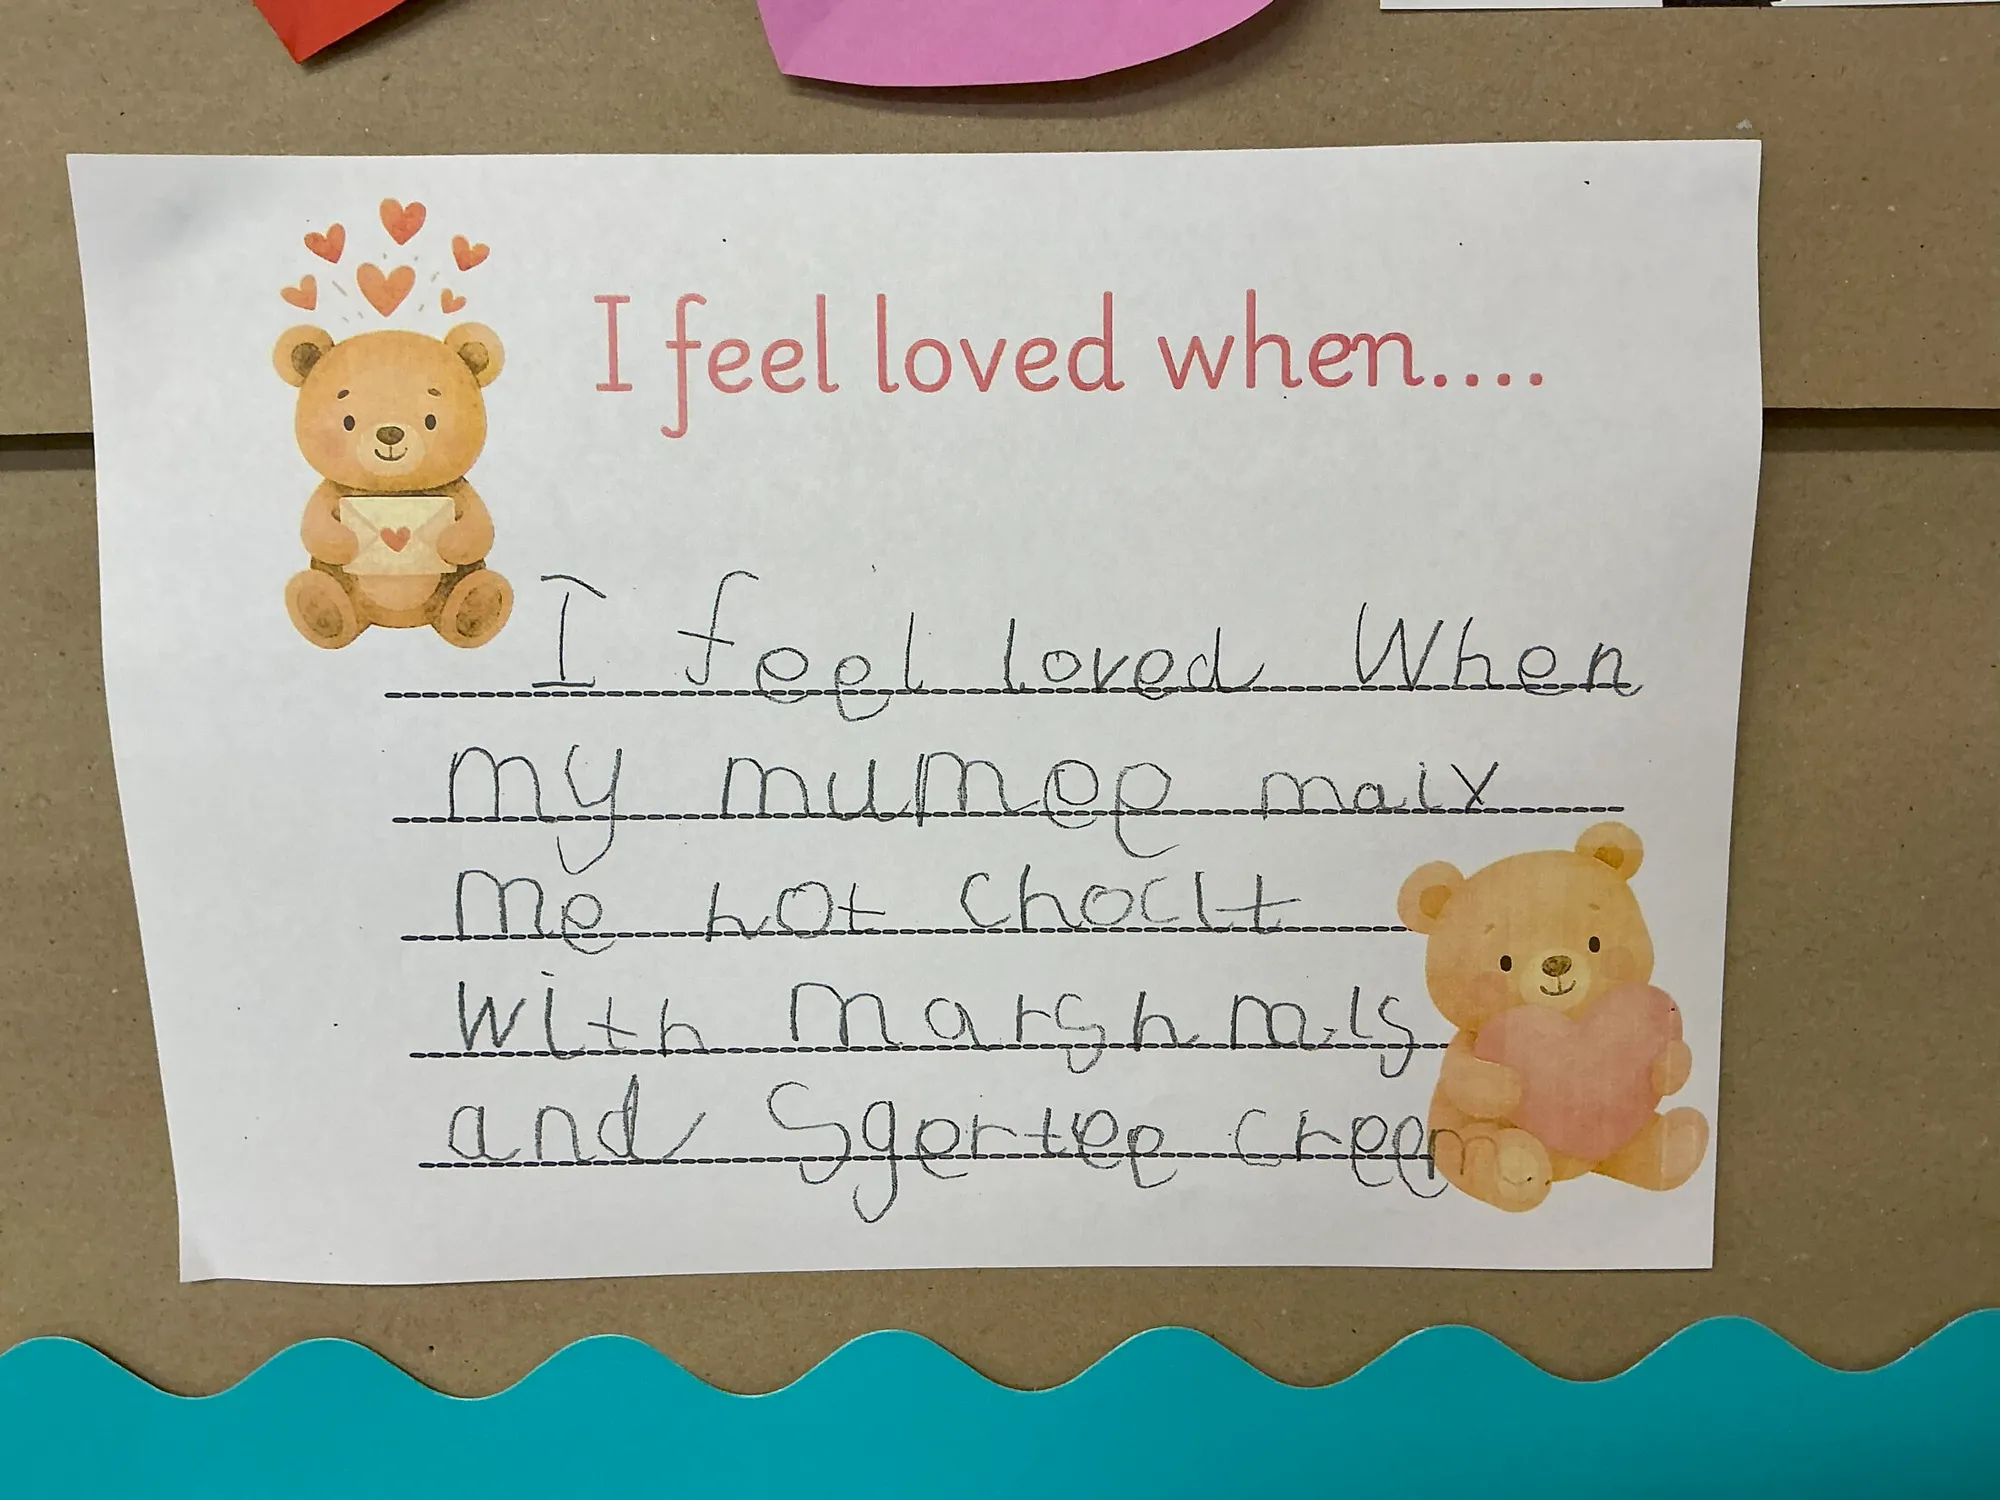 I feel loved when....
I feel loved When
my mumee maix
me hot choclt
with marshmals
and Sgertee creem